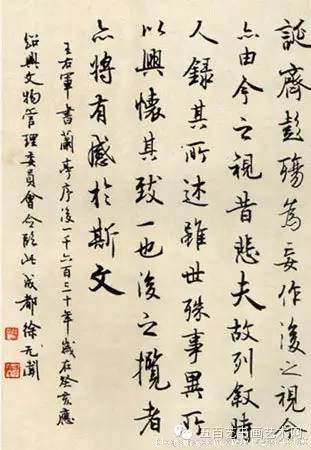 誕齊彭殤為妄作後之視今
亦由今之視昔悲夫故列叙時
人錄其所述雖世殊事異所
以興懷其致一也後之攬者
亦將有感於斯文
王右軍書蘭亭序後一千六百三十年歲在癸亥應
紹興文物管理委員會令臨此成都徐无聞
五百艺书画艺术网